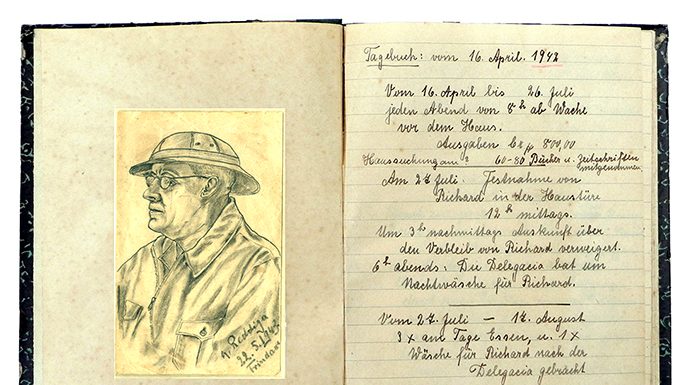 A Reddiga
22.5.1942
Trindade
Tagebuch: vom 16 April. 1942
Vom 16. April bis 26. Juli
jeden Abend von 8 h ab Wache
vor dem Haus.
Ausgaben 800,00
Haussuchung am ? 60-80 Bücher u. Zeitschriften
mitgenommen
Am 27 Juli. Festnahme von
Richard in der Haustüre
12 h mittags.
Um 3 h nachmittags Auskunft über
den Verbleib von Richard verweigert.
6 h abends: Die Delegacia bat um
Nachtwäsche für Richard.
Vom 27. Juli — 17. August
3 x am Tage Essen, u. 1 x
Wäsche für Richard nach der
Delegacia gebracht